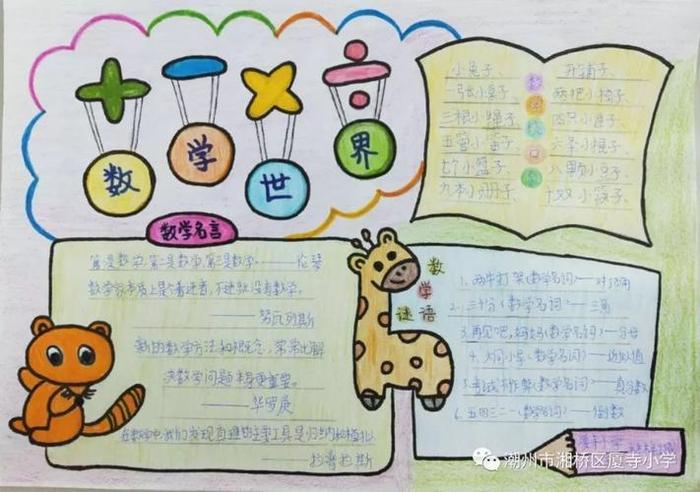 数学世界
小兔子、 开铺子、
一张小桌子、 两把小椅子、
三根小绳子、 四只小匣子、
五管小笛子、 六条小棍子、
七个小盘子、 八颗小豆子、
九本小册子、 十双小筷子、
数学
口
数学名言
第一是数学,第二是数学,第三是数学。——伦琴
数学家本质上是个着迷者,不迷就没有数学。
——努瓦列斯
新的数学方法和概念,常常比解
决数学问题本身更重要。
——华罗庚
在数学中,我们发现真理的主要工具是归纳和模拟。
——拉普拉斯
数学谜语
1、两牛打架(数学名词)——对顶角
2、三十分(数学名词)——三角
3、再见吧,妈妈(数学名词)——分母
4、大同小异(数学名词)——近似值
5、考试不作弊(数学名词)——真分数
6、五四三二一(数学名词)——倒数
潮州市湘桥区厦寺小学